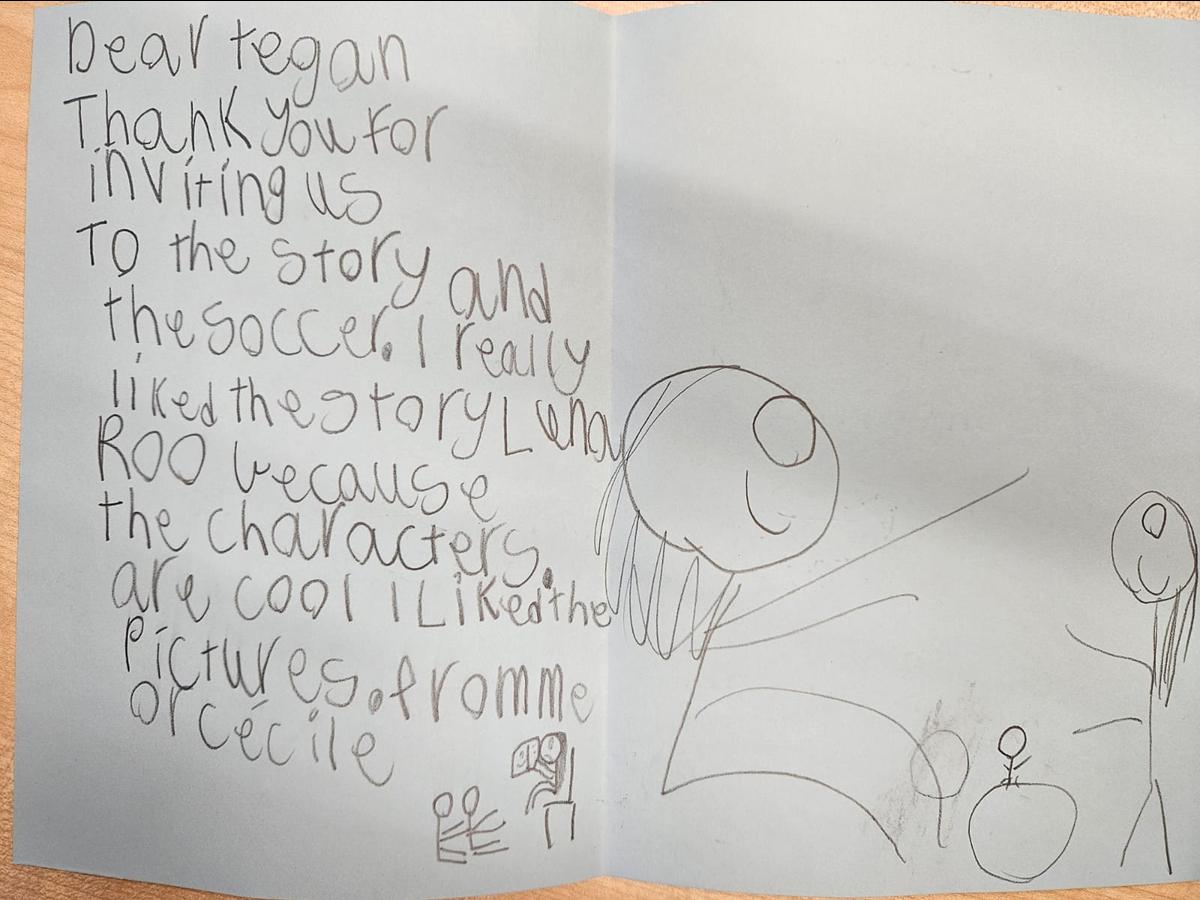 Dear tegan
Thank you for
inviting us
To the story and
the soccer. I really
liked the story Luna
ROO because
the characters.
are cool I Liked the
Pictures. from me
or cécile